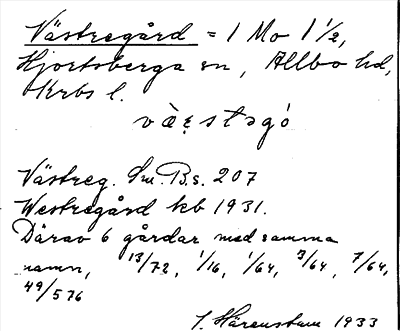 Västregård = 1 Mo 1 1/2,
Hjortsberga sn, Allbo hd,
Krbs l.
Västreg. Sm. B.s. 207
Westregård kb 1931.
Därav 6 gårdar med samma
namn, 13/72, 1/16, 1/64, 3/64, 7/64,
49/576
Härenstam 1933